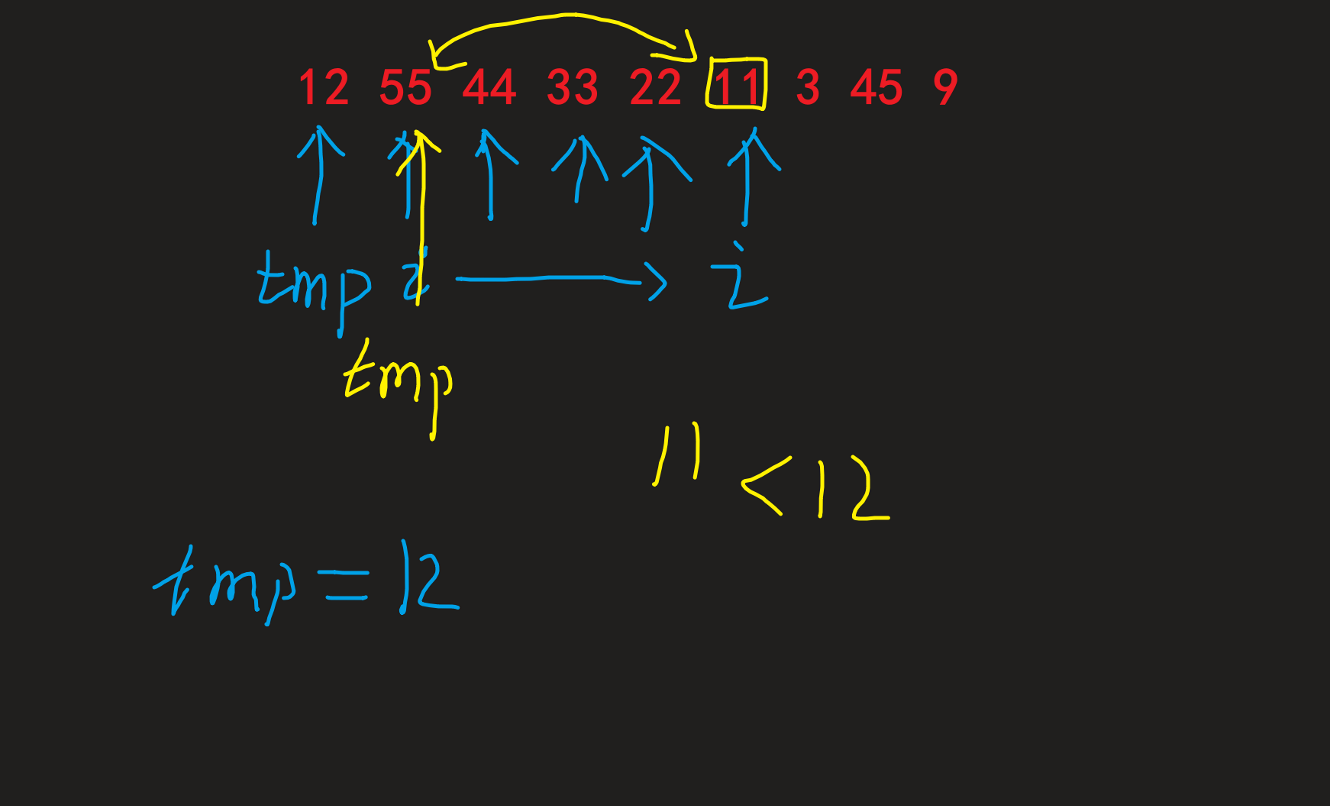 12 55 44 33 22 11 3 45 9
tmp i i
tmp
11 < 12
tmp = 12